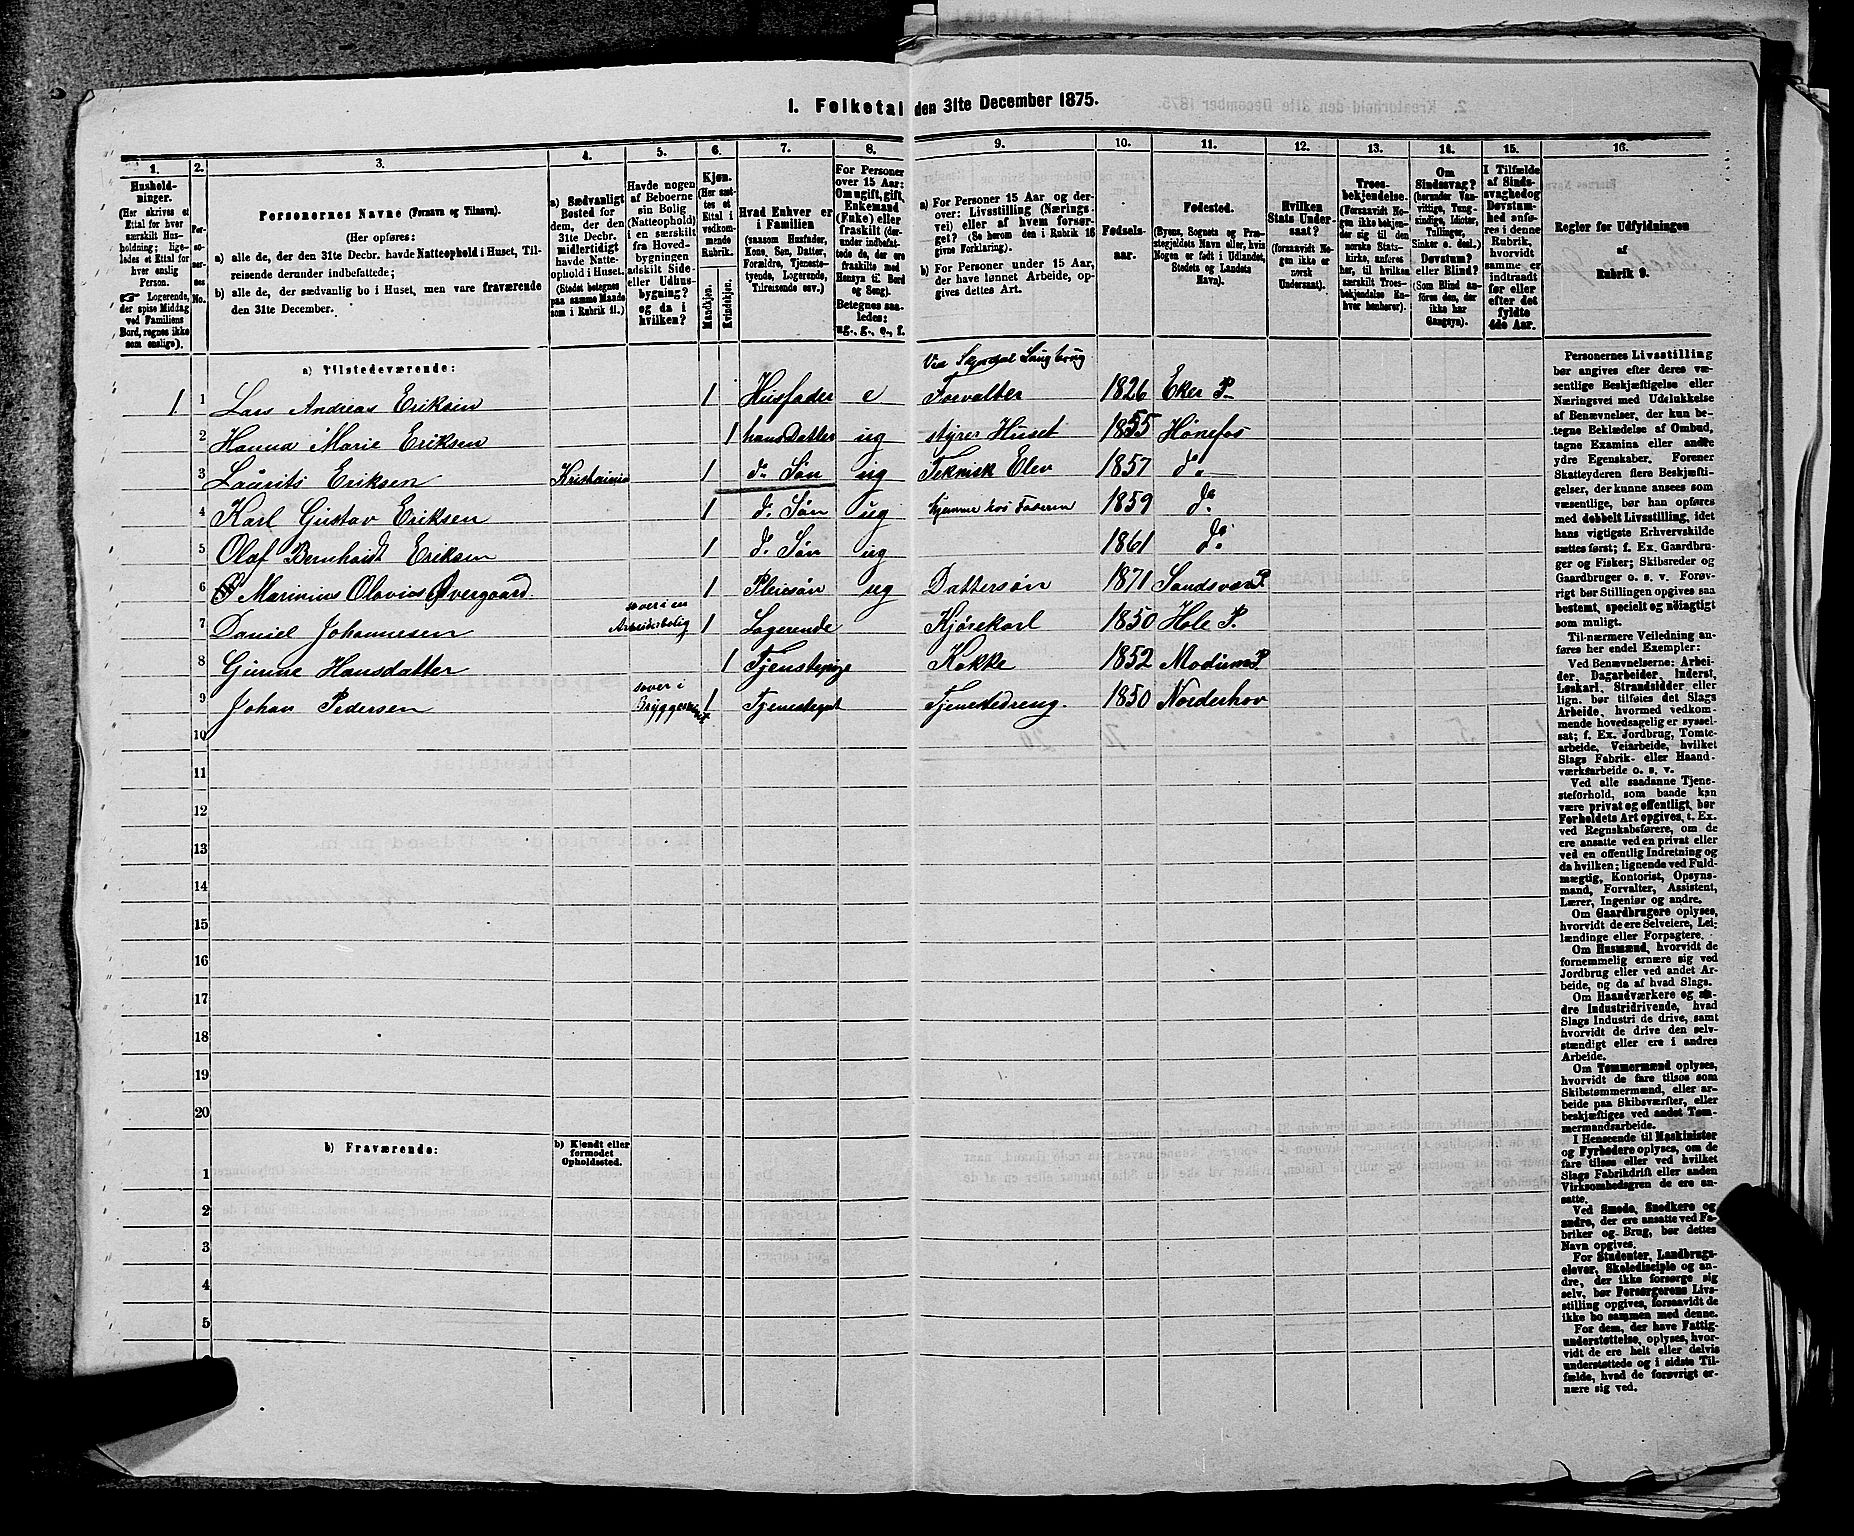 I. Folketal den 31te December 1875.
1.
2.
3.
4.
5.
6.
7.
8.
9.
10.
11.
12.
13.
14.
15.
16.
Husholdninger.
(Her skrives et Ettal for hver særskilt Husholdning; ligeledes et Ettal for hver enslig Person.
☞ Logerende, der spise Middag ved Familiens Bord, regnes ikke som enslige).
Personernes No.
Personernes Navne (Fornavn og Tilnavn).
(Her opføres:
a) alle de, der den 31te Decbr. havde Natteophold i Huset, Tilreisende derunder indbefattede;
b) alle de, der sædvanlig bo i Huset, men vare fraværende den 31te December.
a) Sædvanligt Bosted for dem, der den 31te Decbr. midlertidigt havde Natteophold i Huset. (Stedet betegnes paa samme Maade som i Rubrik 11.)
Havde nogen af Beboerne sin Bolig (Natteophold) i en særskilt fra Hovedbygningen adskilt Side- eller Udhusbygning? og da i hvilken?
Kjøn.
(Her sættes et Ettal i vedkommende Rubrik.
Mandkjøn.
Kvindekjøn.
Hvad Enhver er i Familien
(saasom Husfader, Kone, Søn, Datter, Forældre, Tjenestetyende, Logerende, Tilreisende osv.)
For Personer over 15 Aar: Om ugift, gift, Enkemand (Enke) eller fraskilt (derunder indbefattede de, der ere fraskilte med Hensyn til Bord og Seng).
Betegnes saaledes: ug., g., e., f.
a) For Personer 15 Aar og derover: Livsstilling (Næringsvei) eller af hvem forsørget? (Se herom den i Rubrik 16 givne Forklaring).
b) For Personer under 15 Aar, der have lønnet Arbeide, opgives dettes Art.
Fødselsaar.
Fødested.
(Byens, Sognets og Præstegjeldets Navn eller, hvis Nogen er født i Udlandet, Stedets og Landets Navn).
Hvilken Stats Undersaat?
(forsaavidt Nogen ikke er norsk Undersaat).
Troesbekjendelse.
(Forsaavidt Nogen ikke bekjender sig til den norske Statskirke, anføres her, til hvilken særskilt Troesbekjendelse Enhver henhører).
Om Sindssvag? (herunder Vanvittige, Tungsindige, Idioter, Sinker o. desl.) Døvstum? eller Blind? (Som Blind anføres den, der ikke har Gangsyn).
I Tilfælde af Sindssvaghed og Døvstumhed anføres i denne Rubrik, hvorvidt samme er indtraadt før eller efter det fyldte 4de Aar.
Regler for Udfyldningen
af
Rubrik 9.
a) Tilstedeværende:
1 1 Lars Andreas Eriksen 1 Husfader e Forvalter 1826 Eker P.
2 Hanna Marie Eriksen 1 hans Datter ug styrer Huset 1855 Hønefos
3 Laurits Eriksen Kristiania 1 do Søn ug Teknisk Elev 1857 do
4 Karl Gustav Eriksen 1 do Søn ug hjemme hos Faderen 1859 do
5 Olaf Bernhardt Eriksen 1 do Søn ug 1861 do
6 Marinius Olavius Øvergaard. 1 Pleiesøn ug Dattersøn 1871 Sandsvær P.
7 Daniel Johannesen sover i en Arbeiderbolig 1 Logerende Kjørekarl 1850 Hole P.
8 Gunne Hansdatter 1 Tjenstepige Kokke 1852 Modum P.
9 Johan Pedersen sover i Bryggerset 1 Tjenestegut Tjenestedreng. 1850 Norderhov
10
11
12
13
14
15
16
17
18
19
20
b) Fraværende:
b) Kjendt eller formodet Opholdssted.
1
2
3
4
5
Personernes Livsstilling
bør angives efter deres væ-
sentlige Beskjæftigelse eller
Næringsvei med Udelukkelse
af Benævnelser, der kun be-
tegne Beklædelse af Ombud,
tagne Examina eller andre
ydre Egenskaber. Forener
Skatteyderen flere Beskjæfti-
gelser, der kunne ansees som
væsentlige, bør han opføres
med dobbelt Livsstilling, idet
hans vigtigste Erhvervskilde
sættes først; f. Ex. Gaardbru-
ger og Fisker; Skibsreder og
Gaardbruger o. s. v. Forøv-
rigt bør Stillingen opgives saa
bestemt, specielt og nøiagtigt
som muligt.
Til nærmere Veiledning an-
føres her endel Exempler:
Ved Benævnelserne: Arbei-
der, Dagarbeider, Inderst,
Løskarl, Strandsidder eller
lign. bør tilføies det Slags
Arbeide, hvormed vedkom-
mende hovedsagelig er syssel-
sat; f. Ex. Jordbrug, Tomte-
arbeide, Veiarbeide, hvilket
Slags Fabrik- eller Haand-
værksarbeide o. s. v.
Ved alle saadanne Tjene-
steforhold, som baade kan
være privat og offentligt, bør
Forholdets Art opgives, t. Ex.
ved Regnskabsførere, om de
ere ansatte ved en privat eller
ved en offentlig Indretning og
da hvilken; lignende ved Fuld-
mægtig, Kontorist, Opsyns-
mand, Forvalter, Assistent,
Lærer, Ingeniør og andre.
Om Gaardbrugere oplyses,
hvorvidt de ere Selveiere, Lei-
lændinge eller Forpagtere.
Om Husmænd, hvorvidt de
fornemmelig ernære sig ved
Jordbrug eller ved andet Ar-
beide, og da af hvad Slags.
Om Haandværkere og an-
dre Industridrivende, hvad
Slags Industri de drive, samt
hvorvidt de drive den selv-
stændigt eller ere i andres
Arbeide.
Om Tømmermænd oplyses,
hvorvidt de fare tilsøs som
Skibstømmermænd, eller ar-
beide paa Skibsværfter, eller
beskjæftiges ved andet Tøm-
mermandsarbeide.
I Henseende til Maskinister
og Fyrbødere oplyses, om de
fare tilsøs eller ved hvilket
Slags Fabrikdrift eller anden
Virksomhedsgren de ere an-
satte.
Ved Smede, Snedkere og
andre, der ere ansatte ved Fa-
briker og Brug, bør dettes
Navn opgives.
For Studenter, Landbrugs-
elever, Skoledisciple og an-
dre, der ikke forsørge sig
selv, bør Forsørgerens Livs-
stilling opgives, forsaavidt de
ikke bo sammen med denne.
For dem, der have Fattig-
understøttelse, oplyses, hvor-
vidt de ere helt eller delvis
understøttede og i sidste Til-
fælde, hvad de forøvrigt er-
nære sig ved.